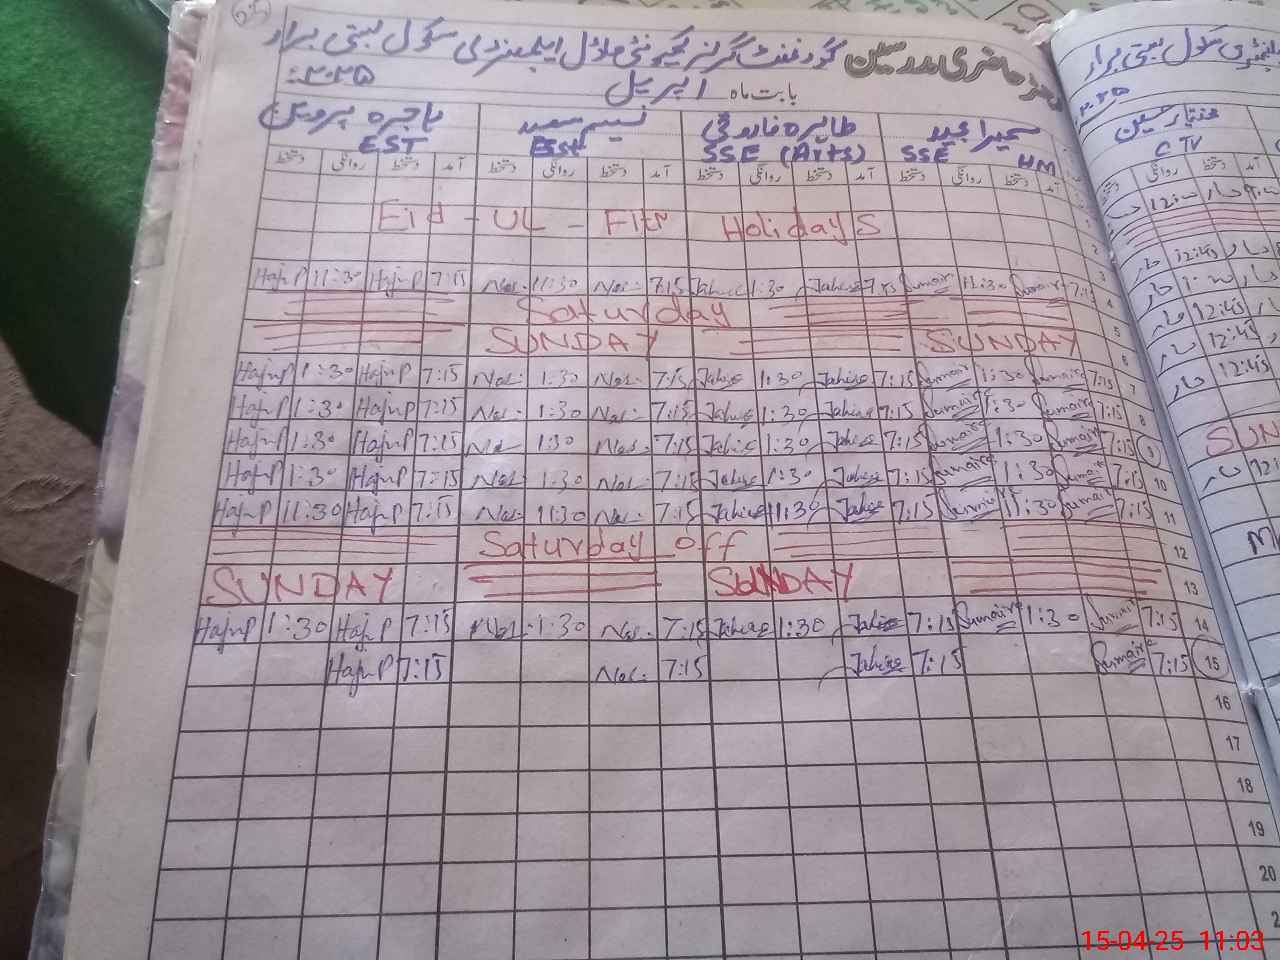 رجسٹر حاضری مدرسین گورنمنٹ گرلز کمیونٹی ماڈل ایلیمنٹری سکول بستی بزدار
بابت ماہ اپریل ۲۰۲۵ء
سمیرا مجید طاہرہ فاروقی نسیم سعید ہاجرہ پروین
SSE HM SSE (Arts) ESE EST
آمد دستخط روانگی دستخط آمد دستخط روانگی دستخط آمد دستخط روانگی دستخط آمد دستخط روانگی دستخط
1
Eid - UL - Fitr Holidays
2
3
HajrP 11:30 HajrP 7:15 Nas. 11:30 Nas. 7:15 Tahira 1:30 Tahira 7:15 Sumaira 11:30 Sumaira 7:1 4
Saturday 5
SUNDAY SUNDAY 6
HajrP 1:30 HajrP 7:15 Nas. 1:30 Nas. 7:15 Tahira 1:30 Tahira 7:15 Sumaira 1:30 Sumaira 7:15 7
HajrP 1:30 HajrP 7:15 Nas. 1:30 Nas. 7:15 Tahira 1:30 Tahira 7:15 Sumaira 1:30 Sumaira 7:15 8
HajrP 1:30 HajrP 7:15 Nas. 1:30 Nas. 7:15 Tahira 1:30 Tahira 7:15 Sumaira 1:30 Sumaira 7:15 9
HajrP 1:30 HajrP 7:15 Nas. 1:30 Nas. 7:15 Tahira 1:30 Tahira 7:15 Sumaira 1:30 Sumaira 7:15 10
HajrP 11:30 HajrP 7:15 Nas. 11:30 Nas. 7:15 Tahira 11:30 Tahira 7:15 Sumaira 11:30 Sumaira 7:15 11
Saturday off 12
SUNDAY SUNDAY 13
HajrP 1:30 HajrP 7:15 Nas. 1:30 Nas. 7:15 Tahira 1:30 Tahira 7:15 Sumaira 1:30 Sumaira 7:15 14
HajrP 7:15 Nas. 7:15 Tahira 7:15 Sumaira 7:15 15
16
17
18
19
20
CTV
12:45
12:45
12:45
12:45
SUN
15-04-25 11:03